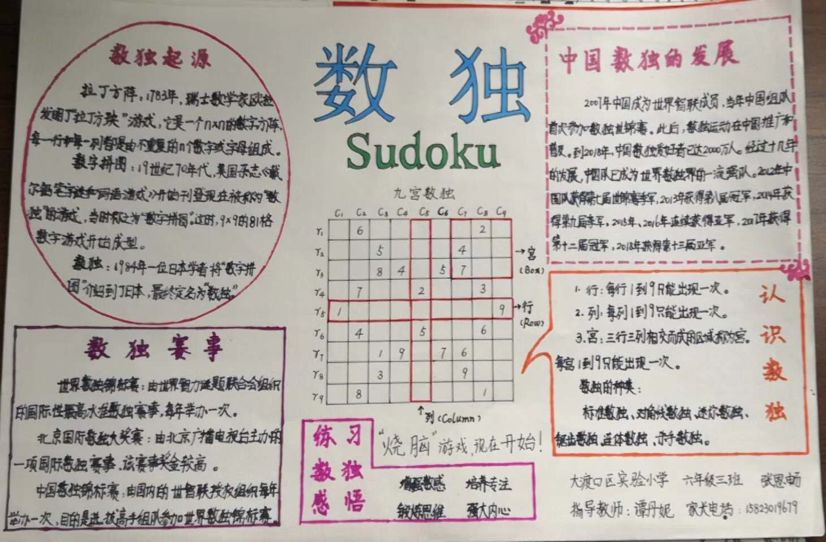 数独起源
拉丁方阵：1783年，瑞士数学家欧拉
发明了拉丁方块”游戏，它是一个n×n的数字方阵，
每一行和每一列皆是由不重复的n个数字或字母组成。
数字拼图：19世纪70年代，美国杂志《戴
尔铅笔字谜和词语游戏》开始刊登现在被称为“数
独”的游戏，当时称之为“数字拼图”。这时，9×9的81格
数字游戏开始成型。
数独：1984年一位日本学者将“数字拼
图”介绍到了日本，最终定名为“数独”。
数独赛事
世界数独锦标赛：由世界智力谜题联合会组织
的国际性最高水准数独赛事，每年举办一次。
北京国际数独大奖赛：由北京广播电视台主办的
一项国际数独赛事，该赛事奖金较高。
中国数独锦标赛：由国内的世智联授权组织每年
举办一次，目的是选拔高手组队参加世界数独锦标赛。
数独
Sudoku
九宫数独
C₁ C₂ C₃ C₄ C₅ C₆ C₇ C₈ C₉
r₁ 6 2
r₂ 5 4
→宫
(Box)
r₃ 8 4 5 7
r₄ 7 2 3
r₅ 1 9
→行
(Row)
r₆ 4 5 6
r₇ 1 9 7 6
r₈ 3 9
r₉ 8 1
↑列(Column)
“烧脑”游戏，现在开始！
练习
数独
感悟
增强数感 培养专注
锻炼思维 强大内心
中国数独的发展
2007年中国成为世界智联成员，当年中国组队
首次参加数独世锦赛。此后，数独运动在中国推广和
普及。到2018年，中国数独爱好者已达2000万人。经过十几年
的发展，中国队已成为世界数独界的一流强队。2012年中
国队获得第七届世锦赛季军，2013年获得第八届冠军，2014年获
得第九届季军，2015年、2016年连续获得亚军，2017年获得
第十二届冠军，2018年获得第十三届亚军。
认识数独
1.行：每行1到9只能出现一次。
2.列：每列1到9只能出现一次。
3.宫：三行三列相交而成的区域称为宫。
每宫1到9只能出现一次。
数独的种类：
标准数独、对角线数独、迷你数独、
锯齿数独、连体数独、杀手数独。
大渡口区实验小学 六年级三班
指导教师：谭丹妮 家长电话：15823019679